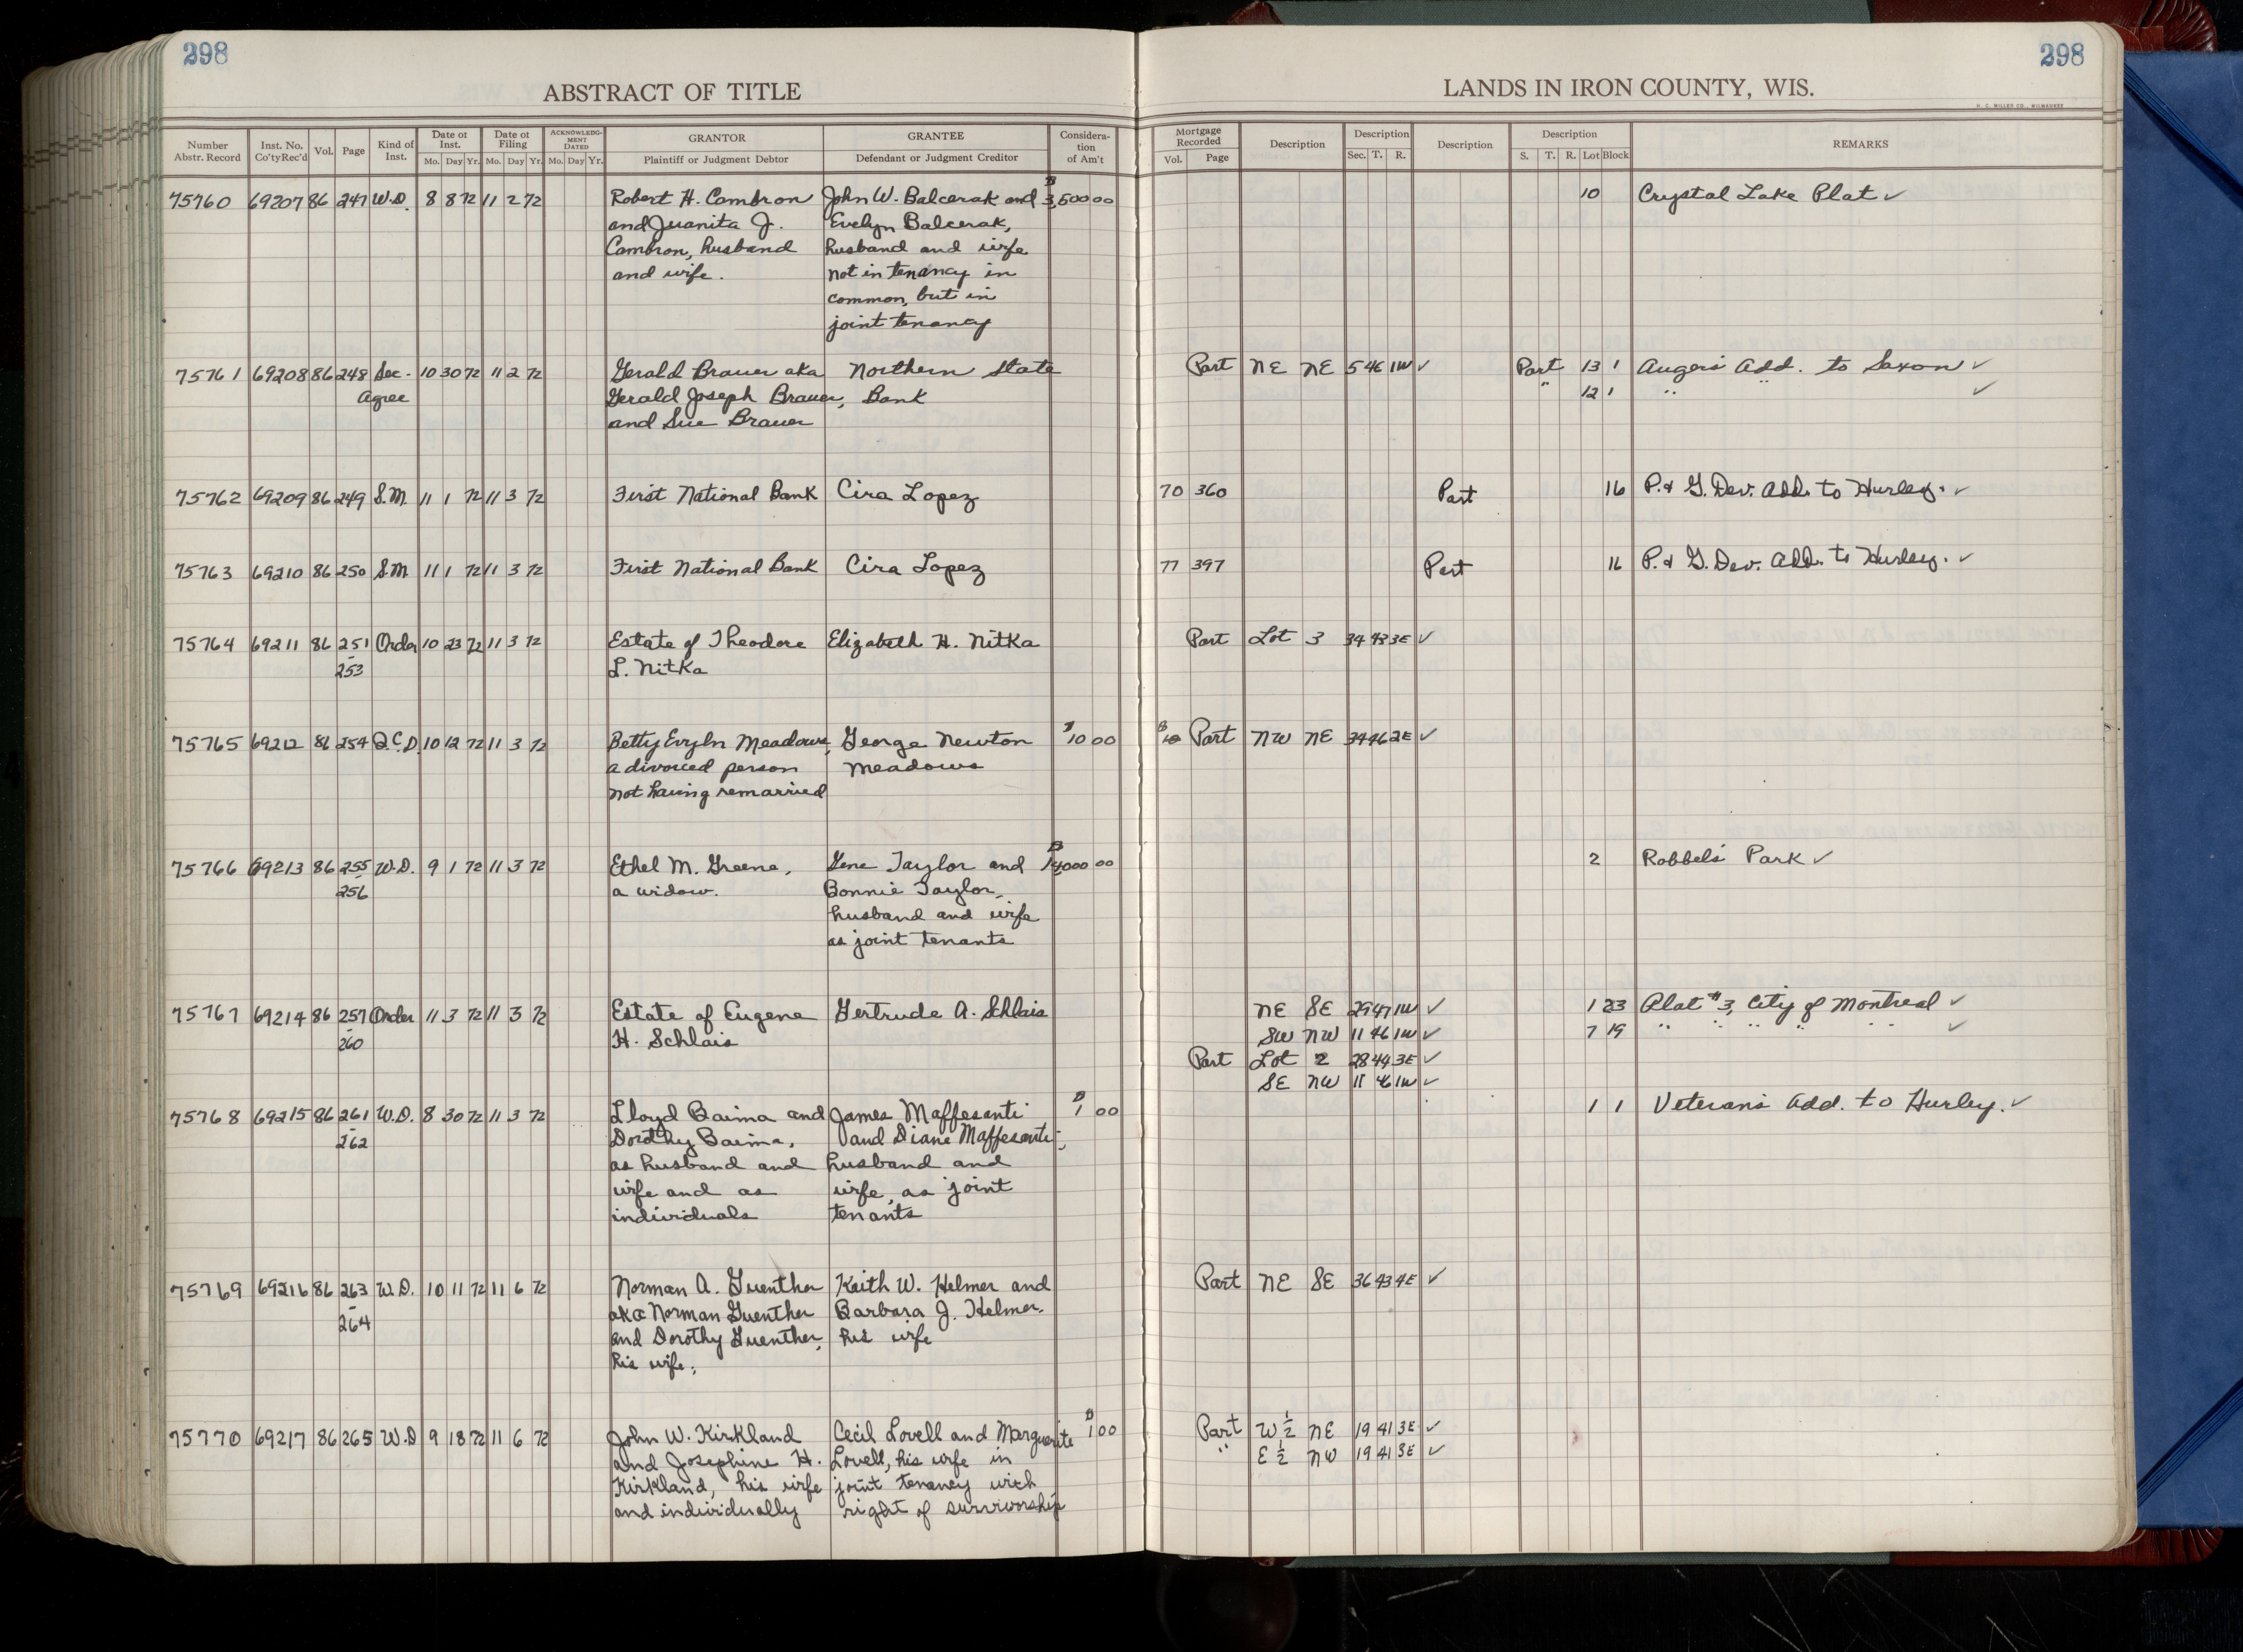 298
298
ABSTRACT OF TITLE
LANDS IN IRON COUNTY, WIS.
H. C. MILLER CO., MILWAUKEE
Number Abstr. Record | Inst. No. Co'ty Rec'd | Vol. | Page | Kind of Inst. | Date of Inst. Mo. Day Yr. | Date of Filing Mo. Day Yr. | ACKNOWLEDGMENT DATED Mo. Day Yr. | GRANTOR Plaintiff or Judgment Debtor | GRANTEE Defendant or Judgment Creditor | Consideration of Am't | Mortgage Recorded Vol. Page | Description | Description Sec. T. R. | Description | Description S. T. R. Lot Block | REMARKS
75760 69207 86 247 W.D. 8 8 72 11 2 72 Robert H. Cambron John W. Balcerak and $3,500 00 10 Crystal Lake Plat ✓
and Juanita J. Evelyn Balcerak,
Cambron, husband husband and wife
and wife. not in tenancy in
common, but in
joint tenancy
75761 69208 86 248 Sec. 10 30 72 11 2 72 Gerald Brauer aka Northern State Part NE NE 5 46 1W ✓ Part 13 1 Auger's Add. to Saxon ✓
Agree Gerald Joseph Brauer, Bank " 12 1 " " ✓
and Sue Brauer
75762 69209 86 249 S.M. 11 1 72 11 3 72 First National Bank Cira Lopez 70 360 Part 16 P. & G. Dev. Add. to Hurley. ✓
75763 69210 86 250 S.M 11 1 72 11 3 72 First National Bank Cira Lopez 77 397 Part 16 P. & G. Dev. Add. to Hurley. ✓
75764 69211 86 251 Order 10 23 72 11 3 72 Estate of Theodore Elizabeth H. Nitka Part Lot 3 34 43 3E ✓
-253 L. Nitka
75765 69212 86 254 Q.C.D. 10 12 72 11 3 72 Betty Evyln Meadows, George Newton $10 00 Part NW NE 34 46 2E ✓
a divorced person Meadows
not having remarried
75766 69213 86 255 W.D. 9 1 72 11 3 72 Ethel M. Greene, Gene Taylor and $14000 00 2 Robbel's Park ✓
-256 a widow. Bonnie Taylor,
husband and wife
as joint tenants
75767 69214 86 257 Order 11 3 72 11 3 72 Estate of Eugene Gertrude A. Schlais NE SE 29 47 1W ✓ 1 23 Plat #3, City of Montreal ✓
-260 H. Schlais SW NW 11 46 1W ✓ 7 19 " " " " " " ✓
Part Lot 2 28 44 3E ✓
SE NW 11 46 1W ✓
75768 69215 86 261 W.D. 8 30 72 11 3 72 Lloyd Baima and James Maffesanti $1 00 1 1 Veteran's Add. to Hurley. ✓
-262 Dorothy Baima, and Diane Maffesanti,
as husband and husband and
wife and as wife, as joint
individuals tenants
75769 69216 86 263 W.D. 10 11 72 11 6 72 Norman A. Guenther Keith W. Helmer and Part NE SE 36 43 4E ✓
-264 aka Norman Guenther Barbara J. Helmer,
and Dorothy Guenther, his wife
his wife,
75770 69217 86 265 W.D 9 18 72 11 6 72 John W. Kirkland Cecil Lovell and Marguerite $1 00 Part W ½ NE 19 41 3E ✓
and Josephine H. Lovell, his wife in " E ½ NW 19 41 3E ✓
Kirkland, his wife joint tenancy with
and individually right of survivorship